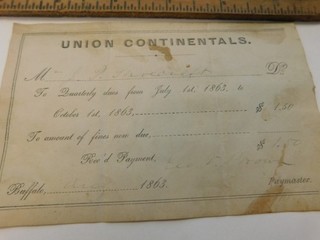 UNION CONTINENTALS.
M Dr
To Quarterly dues from July 1st, 1863, to
October 1st, 1863, $ 1.50
To amount of fines now due, $
Rec'd Payment,
Buffalo, 1863. Paymaster.